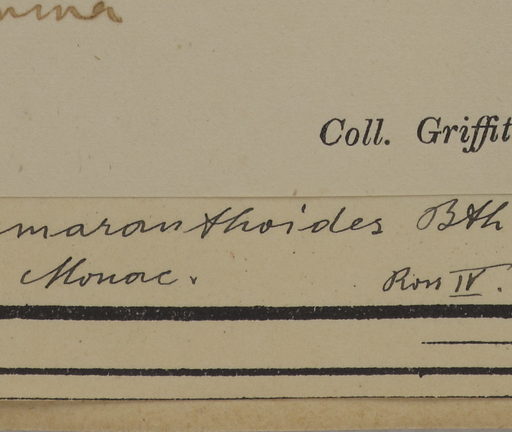 Coll. Griffit
maranthoides Bth
Monac. Ross IV.